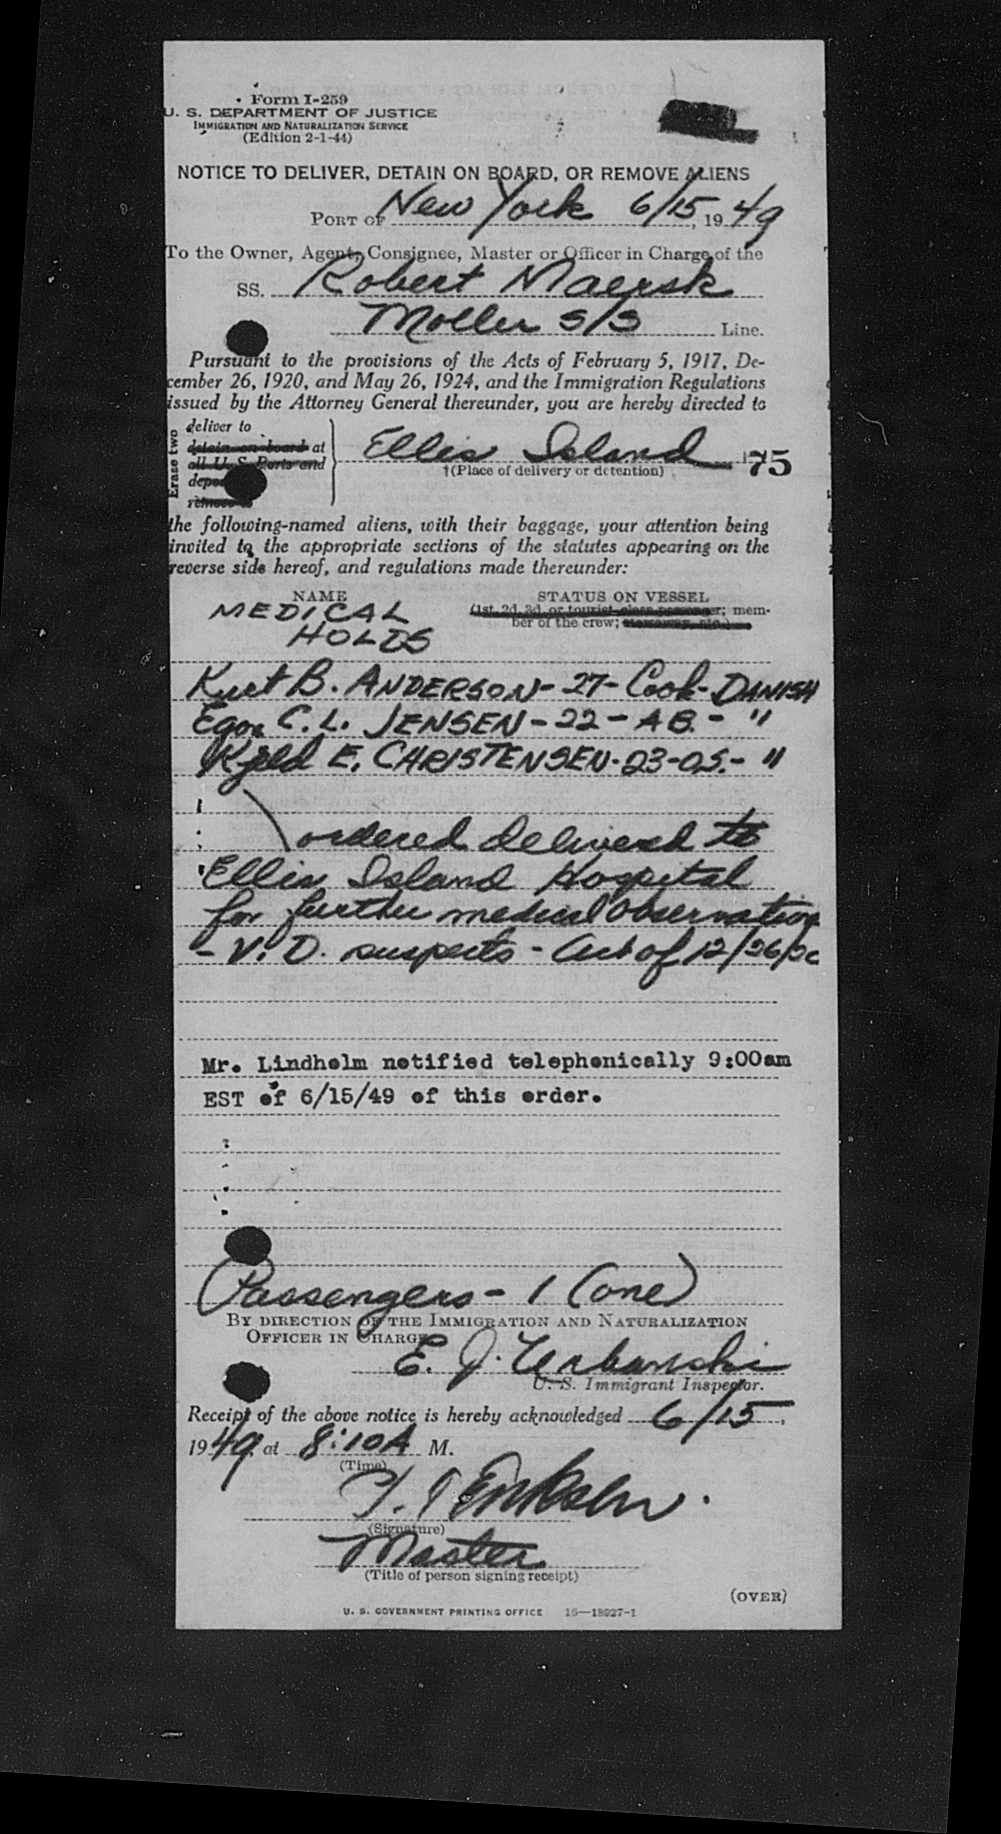 Form I-259
U. S. DEPARTMENT OF JUSTICE
IMMIGRATION AND NATURALIZATION SERVICE
(Edition 2-1-44)
NOTICE TO DELIVER, DETAIN ON BOARD, OR REMOVE ALIENS
PORT OF New York 6/15, 1949
To the Owner, Agent, Consignee, Master or Officer in Charge of the
SS. Robert Maersk
Moller S/S Line.
Pursuant to the provisions of the Acts of February 5, 1917, De-
cember 26, 1920, and May 26, 1924, and the Immigration Regulations
issued by the Attorney General thereunder, you are hereby directed to
Erase two
deliver to
detain on board at
all U. S. Ports and
remove to
Ellis Island
†(Place of delivery or detention)
75
the following-named aliens, with their baggage, your attention being
invited to the appropriate sections of the statutes appearing on the
reverse side hereof, and regulations made thereunder:
NAME
STATUS ON VESSEL
(1st, 2d, 3d, or tourist-class passenger; mem-
ber of the crew;
MEDICAL
HOLDS
Kurt B. ANDERSON - 27 - Cook - DANISH
Egon C. L. JENSEN - 22 - AB. - "
Kjeld E. CHRISTENSEN - 23 - O.S. - "
ordered delivered to
Ellis Island Hospital
for further medical observation
- V.D. suspects - Act of 12/26/20
Mr. Lindholm notified telephonically 9:00am
EST of 6/15/49 of this order.
Passengers - 1 (one)
BY DIRECTION OF THE IMMIGRATION AND NATURALIZATION
OFFICER IN CHARGE
E. J. Urbanski
U. S. Immigrant Inspector.
Receipt of the above notice is hereby acknowledged 6/15,
1949 at 8:10 A M.
(Time)
(Signature)
Master
(Title of person signing receipt)
(OVER)
U. S. GOVERNMENT PRINTING OFFICE 16—18927-1